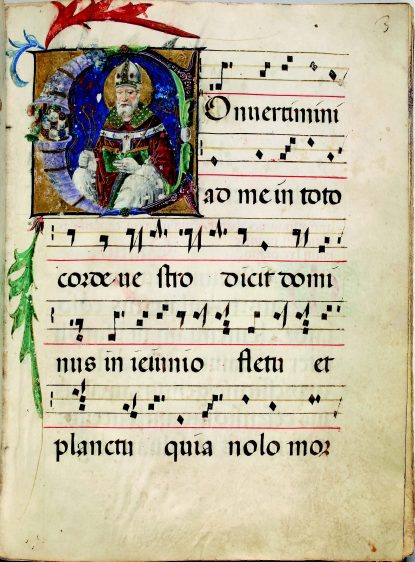 3
COnvertimini
ad me in toto
corde ve stro dicit domi
nus in ieiunio fletu et
planctu quia nolo mor